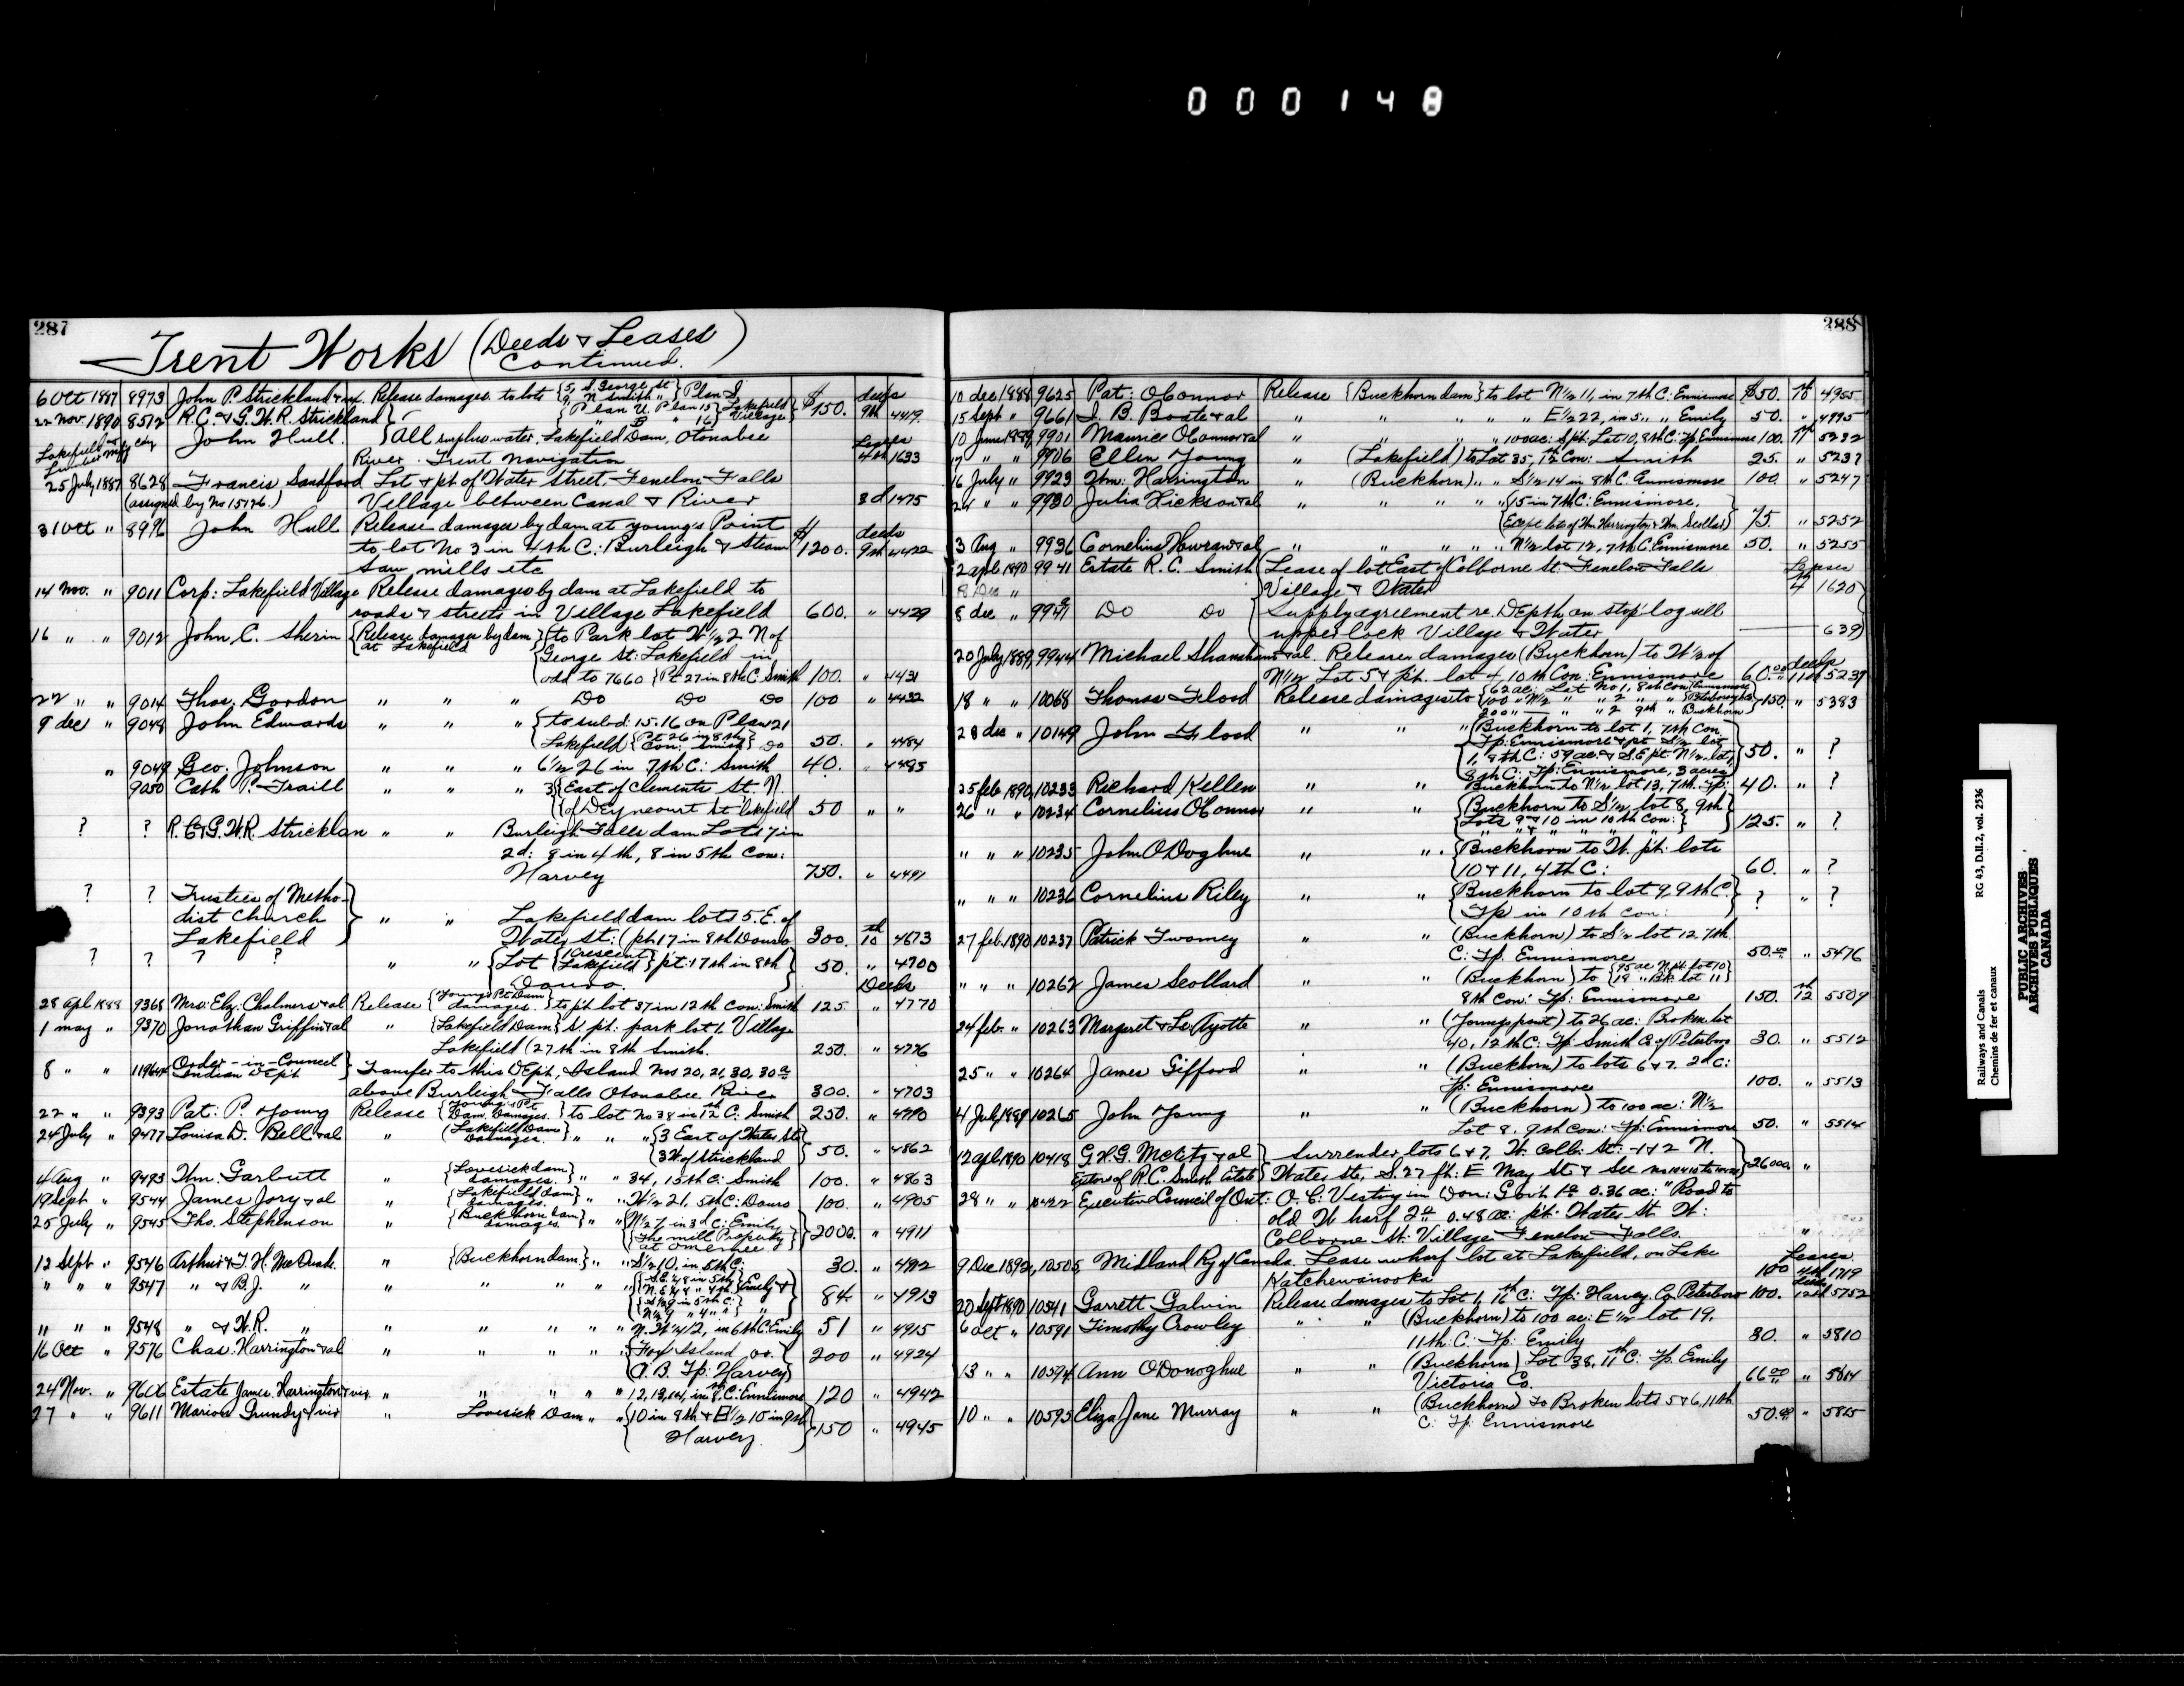 000148
287
Trent Works (Deeds & Leases)
Continued.
6 Oct 1887 8973 John P. Strickland & ux. Release damages to lots {5, S. George St} Plan I
9, N Smith "
22 Nov. 1890 8512 R.C. & G.W.R. Strickland {Plan U. Plan 15} Lakefield Village $150. deeds 9th 4419.
" B " 16
Lakefield Lumber Mfg Coy John Hull. {All surplus water, Lakefield Dam, Otonabee
River. Trent Navigation Leases 4th 1633
25 July 1887 8628 Francis Sandford Lot & pt of Water Street, Fenelon Falls
(assigned by No 15176.) Village between Canal & River 3d 1475
31 Oct " 8996 John Hull Release damages by dam at Young's Point
to lot No 3 in 4th C: Burleigh & Steam $1200. deeds 9th 4422
Saw mills etc
14 Nov. " 9011 Corp: Lakefield Village Release damages by dam at Lakefield to
roads & streets in Village Lakefield 600. " 4429
16 " " 9012 John C. Sherin {Release damages by dam at Lakefield} {to Park lot W½ 2 N of
George St: Lakefield in
add to 7660 {Pt 27 in 8th C. Smith 100. " 4431
22 " " 9014 Thos. Gordon " " " Do Do Do 100 " 4432
9 dec " 9048 John Edwards " " " {to subd: 15.16 on Plan 21
Lakefield {Pt 26 in 8th Con: Smith} Do 50. " 4484
" 9049 Geo. Johnson " " " 6½ 26 in 7th C: Smith 40. " 4485
9050 Cath P. Traill " " " 3 {East of Clements St. N.
of Deyncourt St Lakefield 50 " "
? ? R.C. & G.W.R. Stricklan " " Burleigh Falls dam Lots 7 in
2d: 8 in 4th, 8 in 5th Con:
Harvey 750. " 4491
? ? Trustees of Metho-
dist Church
Lakefield } " " Lakefield dam lots 5. E. of
Water St: (pt 17 in 8th Douro 300. 10th 4673
? ? ? ? " " {Lot {Crescent Lakefield} pt: 17th in 8th 50. " 4700
Douro. Deeds
28 Apl. 1888 9368 Mrs: Eliz. Chalmers & al Release {Young's Pt Dam damages.} to pt lot 37 in 12th Con: Smith 125 " 4770
1 May " 9370 Jonathan Griffin & al " {Lakefield Dam} S. pt: park lot 1. Village
Lakefield (27th in 8th Smith. 250. " 4776
8 " " Order-in-Council Indian Dept } Transfer to this Dept, Island Nos 20, 21, 30, 30a
above Burleigh Falls Otonabee River 300. " 4703
22 " " 9393 Pat: P. Young Release {Young's Pt Dam Damages.} to lot No 38 in 12th C: Smith 250. " 4790
24 July " 9477 Louisa D. Bell & al " {Lakefield Dam Damages.} " " " {3 East of Water St
3 W of Strickland 50. " 4862
4 Aug " 9493 Wm. Garbutt " {Lovesick dam damages.} " " 34, 15th C: Smith 100. " 4863
19 Sept " 9544 James Jory & al " {Lakefield dam damages.} " " W½ 21, 5th C: Douro 100. " 4905
25 July " 9545 Tho. Stephenson " {Buckhorn dam damages.} " " {N½ 7 in 3d C: Emily
{The mill Property at Omemee.} 2000. " 4911
12 Sept " 9546 Arthur & T. H. McQuade. " {Buckhorn dam} " " S½ 10, in 5th C: 30. " 4912
" " " 9547 " & B.J. " " " " " " {S.E.¼ 8 in 5th
N.E.¼ 8 " 4th
S½ 9 in 5th C:
N½ 9 " 4 " "} Emily & 84 " 4913
" " " 9548 " & W.R. " " " " " " N.W¼ 12, in 6th C: Emily 51 " 4915
16 Oct " 9576 Chas: Harrington & al " " " " " {Fox Island
A. B. Tp: Harvey} 200 " 4924
24 Nov. " 9606 Estate James. Harrington & vir " " " " " 12, 13, 14, in 8th C: Ennismore 120 " 4942
27 " " 9611 Marion Grundy & vir " Lovesick Dam " " {10 in 8th & E½ 10 in 9th
Harvey. } 150 " 4945
288
10 dec 1888 9625 Pat: O'Connor Release {Buckhorn dam} to lot N½ 11, in 7th C: Ennismore $50. 10 4955
15 Sept " 9661 J. B. Boate & al " " " " " E½ 22, in 5 " " Emily 50. " 4995
10 June 1889 9901 Maurice O'Connor & al " " " " " 100 ac: S pt: Lot 10, 8th C: Tp Ennismore 100. 11 5232
17 " " 9906 Ellen Young " (Lakefield) to Lot 35, 12th Con: Smith 25. " 5237
16 July " 9923 Wm. Harrington " (Buckhorn) " " S½ 14 in 8th C. Ennismore 100. " 5247
24 " " 9930 Julia Hickson & al " " " " " {15 in 7th C: Ennismore.
(Except lots of Wm Harrington & Wm. Scollard) 75. " 5252
3 Aug " 9936 Cornelius Howran & al " " " " " N½ lot 12, 7th C. Ennismore 50. " 5255
2 april 1890 9941 Estate R. C. Smith {Lease of lot East of Colborne St: Fenelon Falls Leases
8 Dec " Village & Water 4 1620
8 dec " 9941 Do Do {Supply agreement re. Depth on stop log sill
upper lock Village & Water 639
20 July 1889 9944 Michael Shanahan & al. Release damages (Buckhorn) to W½ of
N½ Lot 5 & pt. lot 4, 10th Con: Ennismore 60.00 deeds 11th 5239
18 " " 10068 Thomas Flood Release damages to {62 ac: Lot No 1, 8th con} Ennismore
100 " N½ " " 2 " " Peterborough Co.
200 " — " " 2 9th " Buckhorn 150. " 5383
28 dec " 10149 John Flood " " " {Buckhorn to lot 1, 7th Con
Tp: Ennismore & pt S½ lot
1, 8th C: 59 ac: & S.E pt: N½ lot 1,
8th C: Tp: Ennismore, 3 acres} 50. " ?
25 feb 1890 10233 Richard Kellen " " Buckhorn to N½ lot 13, 7th. Tp: 40. " ?
26 " " 10234 Cornelius O'Connor " " {Buckhorn to S½ lot 8, 9th
Lots 9 & 10 in 10th Con: } 125. " ?
" " " 10235 John O'Doghue " " {Buckhorn to W. pt: lots
10 & 11, 4th C: 60. " ?
" " " 10236 Cornelius Riley " " {Buckhorn to lot 9, 9th C.
Tp in 10th Con: } ? " ?
27 feb. 1890 10237 Patrick Twomey " " (Buckhorn) to S½ lot 12, 7th
C: Tp. Ennismore 50.00 " 5476
" " " 10262 James Scollard " " (Buckhorn) to {95 ac N pt lot 10
18 " Bk. lot 11}
8th Con: Tp: Ennismore 150. 12th 5509
24 feb. " 10263 Margaret & Ayotte " " (Youngs point) to 26 ac: Broken lot
40, 12th C: Tp: Smith Co. of Peterboro 30. " 5512
25 " " 10264 James Gifford " " (Buckhorn) to lots 6 & 7. 2d C:
Tp: Ennismore 100. " 5513
4 July 1889 10265 John Young " " (Buckhorn) to 100 ac: N½
Lot 8. 9th Con: Tp: Ennismore 50. " 5514
12 apl. 1890 10418 & al } Surrender lots 6 & 7, W. Colb: St: - 1 & 2 N.
Exetors of R.C. Smith Estate } Water Ste, S. 27 ft: E May St & See 26000. "
28 " " 10422 Executive Council of Ont: O. C: Vesting in Dom: Gov't 1o 0.36 ac: "Road to
old Wharf 2d 0.48 ac: pt: Water St. W:
Colborne St: Village Fenelon Falls. "
9 Dec 1892 10505 Midland Ry of Canada. Lease wharf lot at Lakefield, on Lake
Katchewanooka 100 Leases 4th 1719
20 Sept 1890 10541 Garrett Galvin Release damages to Lot 1, 16th C: Tp: Harvey Co. Peterboro 100. deeds 12th 5752
6 Oct " 10591 Timothy Crowley " " (Buckhorn) to 100 ac: E½ lot 19.
11th C: Tp: Emily 80. " 5810
13 " " 10594 Ann O'Donoghue " " (Buckhorn) Lot 38, 11th C: Tp. Emily
Victoria Co. 66.00 " 5814
10 " " 10595 Eliza Jane Murray " " (Buckhorn) To Broken lots 5 & 6, 11th
C: Tp: Ennismore 50.00 " 5815
Railways and Canals RG 43, D.II.2, vol. 2536
Chemins de fer et canaux
PUBLIC ARCHIVES
ARCHIVES PUBLIQUES
CANADA